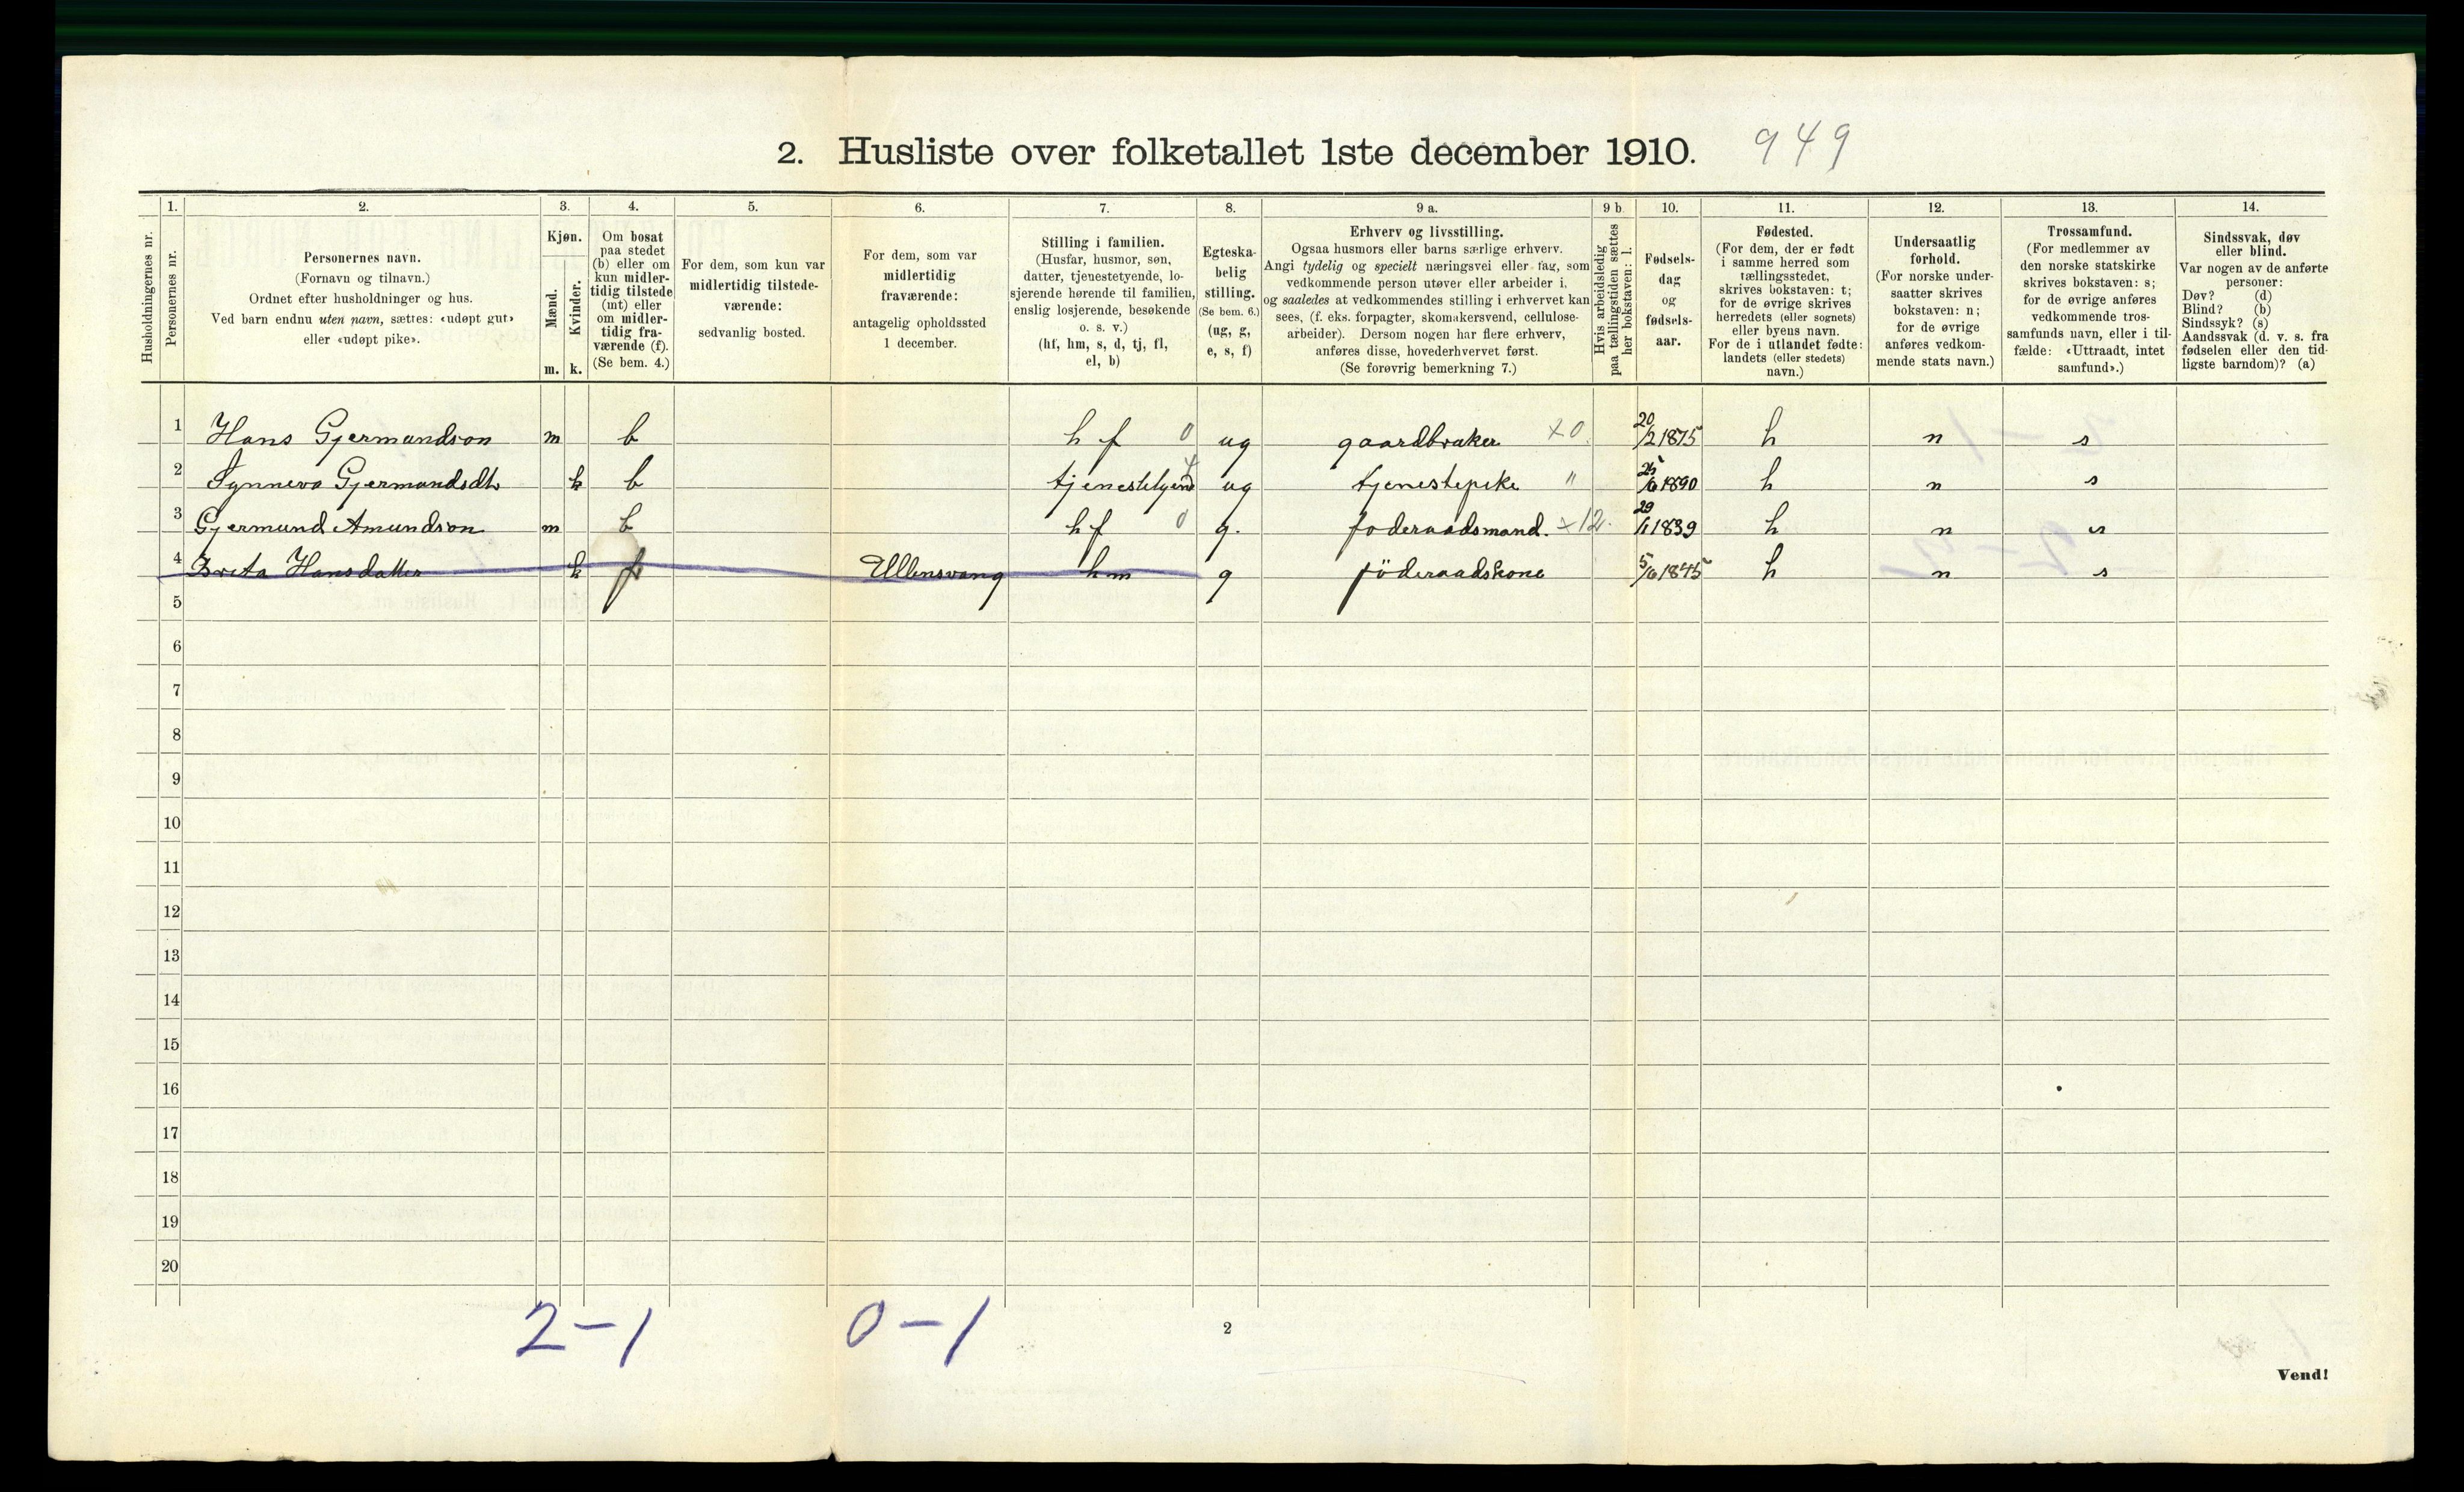 2. Husliste over folketallet 1ste december 1910. 949
1. 2. 3. 4. 5. 6. 7. 8. 9 a. 9 b. 10. 11. 12. 13. 14.
Husholdningernes nr.
Personernes nr.
Personernes navn.
(Fornavn og tilnavn.)
Ordnet efter husholdninger og hus.
Ved barn endnu uten navn, sættes: «udøpt gut»
eller «udøpt pike».
Kjøn.
Mænd.
Kvinder.
m. k.
Om bosat
paa stedet
(b) eller om
kun midler-
tidig tilstede
(mt) eller
om midler-
tidig fra-
værende (f).
(Se bem. 4.)
For dem, som kun var
midlertidig tilstede-
værende:
sedvanlig bosted.
For dem, som var
midlertidig
fraværende:
antagelig opholdssted
1 december.
Stilling i familien.
(Husfar, husmor, søn,
datter, tjenestetyende, lo-
sjerende hørende til familien,
enslig losjerende, besøkende
o. s. v.)
(hf, hm, s, d, tj, fl,
el, b)
Egteska-
belig
stilling.
(Se bem. 6.)
(ug, g,
e, s, f)
Erhverv og livsstilling.
Ogsaa husmors eller barns særlige erhverv.
Angi tydelig og specielt næringsvei eller fag, som
vedkommende person utøver eller arbeider i,
og saaledes at vedkommendes stilling i erhvervet kan
sees, (f. eks. forpagter, skomakersvend, cellulose-
arbeider). Dersom nogen har flere erhverv,
anføres disse, hovederhvervet først.
(Se forøvrig bemerkning 7.)
Hvis arbeidsledig
paa tællingstiden sættes
her bokstaven: l.
Fødsels-
dag
og
fødsels-
aar.
Fødested.
(For dem, der er født
i samme herred som
tællingsstedet,
skrives bokstaven: t;
for de øvrige skrives
herredets (eller sognets)
eller byens navn.
For de i utlandet fødte:
landets (eller stedets)
navn.)
Undersaatlig
forhold.
(For norske under-
saatter skrives
bokstaven: n;
for de øvrige
anføres vedkom-
mende stats navn.)
Trossamfund.
(For medlemmer av
den norske statskirke
skrives bokstaven: s;
for de øvrige anføres
vedkommende tros-
samfunds navn, eller i til-
fælde: «Uttraadt, intet
samfund».)
Sindssvak, døv
eller blind.
Var nogen av de anførte
personer:
Døv? (d)
Blind? (b)
Sindssyk? (s)
Aandssvak (d. v. s. fra
fødselen eller den tid-
ligste barndom)? (a)
1 Hans Gjermundson m b h f 0 ug gaardbruker x 0 20/2 1875 h n s
2 Synneva Gjermundsdtr k b tjenestetyend 4 ug tjenestepike " 25/6 1890 h n s
3 Gjermund Amundson m b h f 0 g. foderaadsmand. x 12. 29/11 1839 h n s
4 Brita Hansdatter k f Ullensvang h m g föderaadskone 5/6 1845 h n s
5
6
7
8
9
10
11
12
13
14
15
16
17
18
19
20
2 - 1 0 - 1
2
Vend!